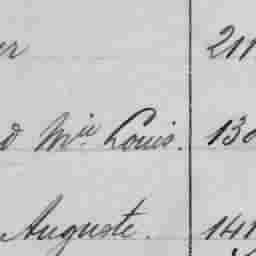 er 211
d Mie Louis. 130
Auguste. 141